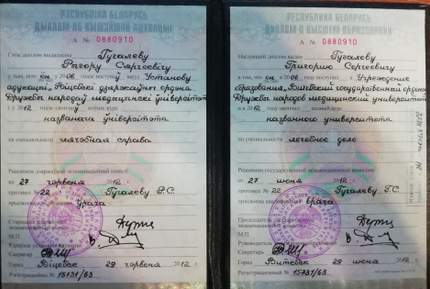 РЭСПУБЛІКА БЕЛАРУСЬ
ДЫПЛОМ АБ ВЫШЭЙШАЙ АДУКАЦЫІ
А № 0880910
Гэты дыплом выдадзены
Гугалеву
Рыгору Сяргеевічу
у тым, што ён у 2006 годзе паступіў ва Установу
адукацыі „Віцебскі дзяржаўны ордэна
Дружбы народаў медыцынскі ўніверсітэт
і ў 2012 годзе скончыў поўны курс
названага ўніверсітэта
лячэбная справа
Рашэннем дзяржаўнай экзаменацыйнай камісіі
ад 27 чэрвеня 2012 г.
пратакол № 22 Гугалеву Р.С.
прысвоена кваліфікацыя ўрача
Старшыня
Сакратар
Горад Віцебск 29 чэрвеня 2012 г.
Рэгістрацыйны № 15731/63
РЕСПУБЛИКА БЕЛАРУСЬ
ДИПЛОМ О ВЫСШЕМ ОБРАЗОВАНИИ
А № 0880910
Настоящий диплом выдан
Гугалеву
Григорию Сергеевичу
в том, что он в 2006 году поступил в Учреждение
образования „Витебский государственный ордена
Дружбы народов медицинский университет
и в 2012 году окончил полный курс
названного университета
лечебное дело
Решением государственной экзаменационной комиссии
от 27 июня 2012 г.
протокол № 22 Гугалеву Г.С.
присвоена квалификация врача
Председатель
М.П.
Руководитель
Секретарь
Город Витебск 29 июня 2012 г.
Регистрационный № 15731/63